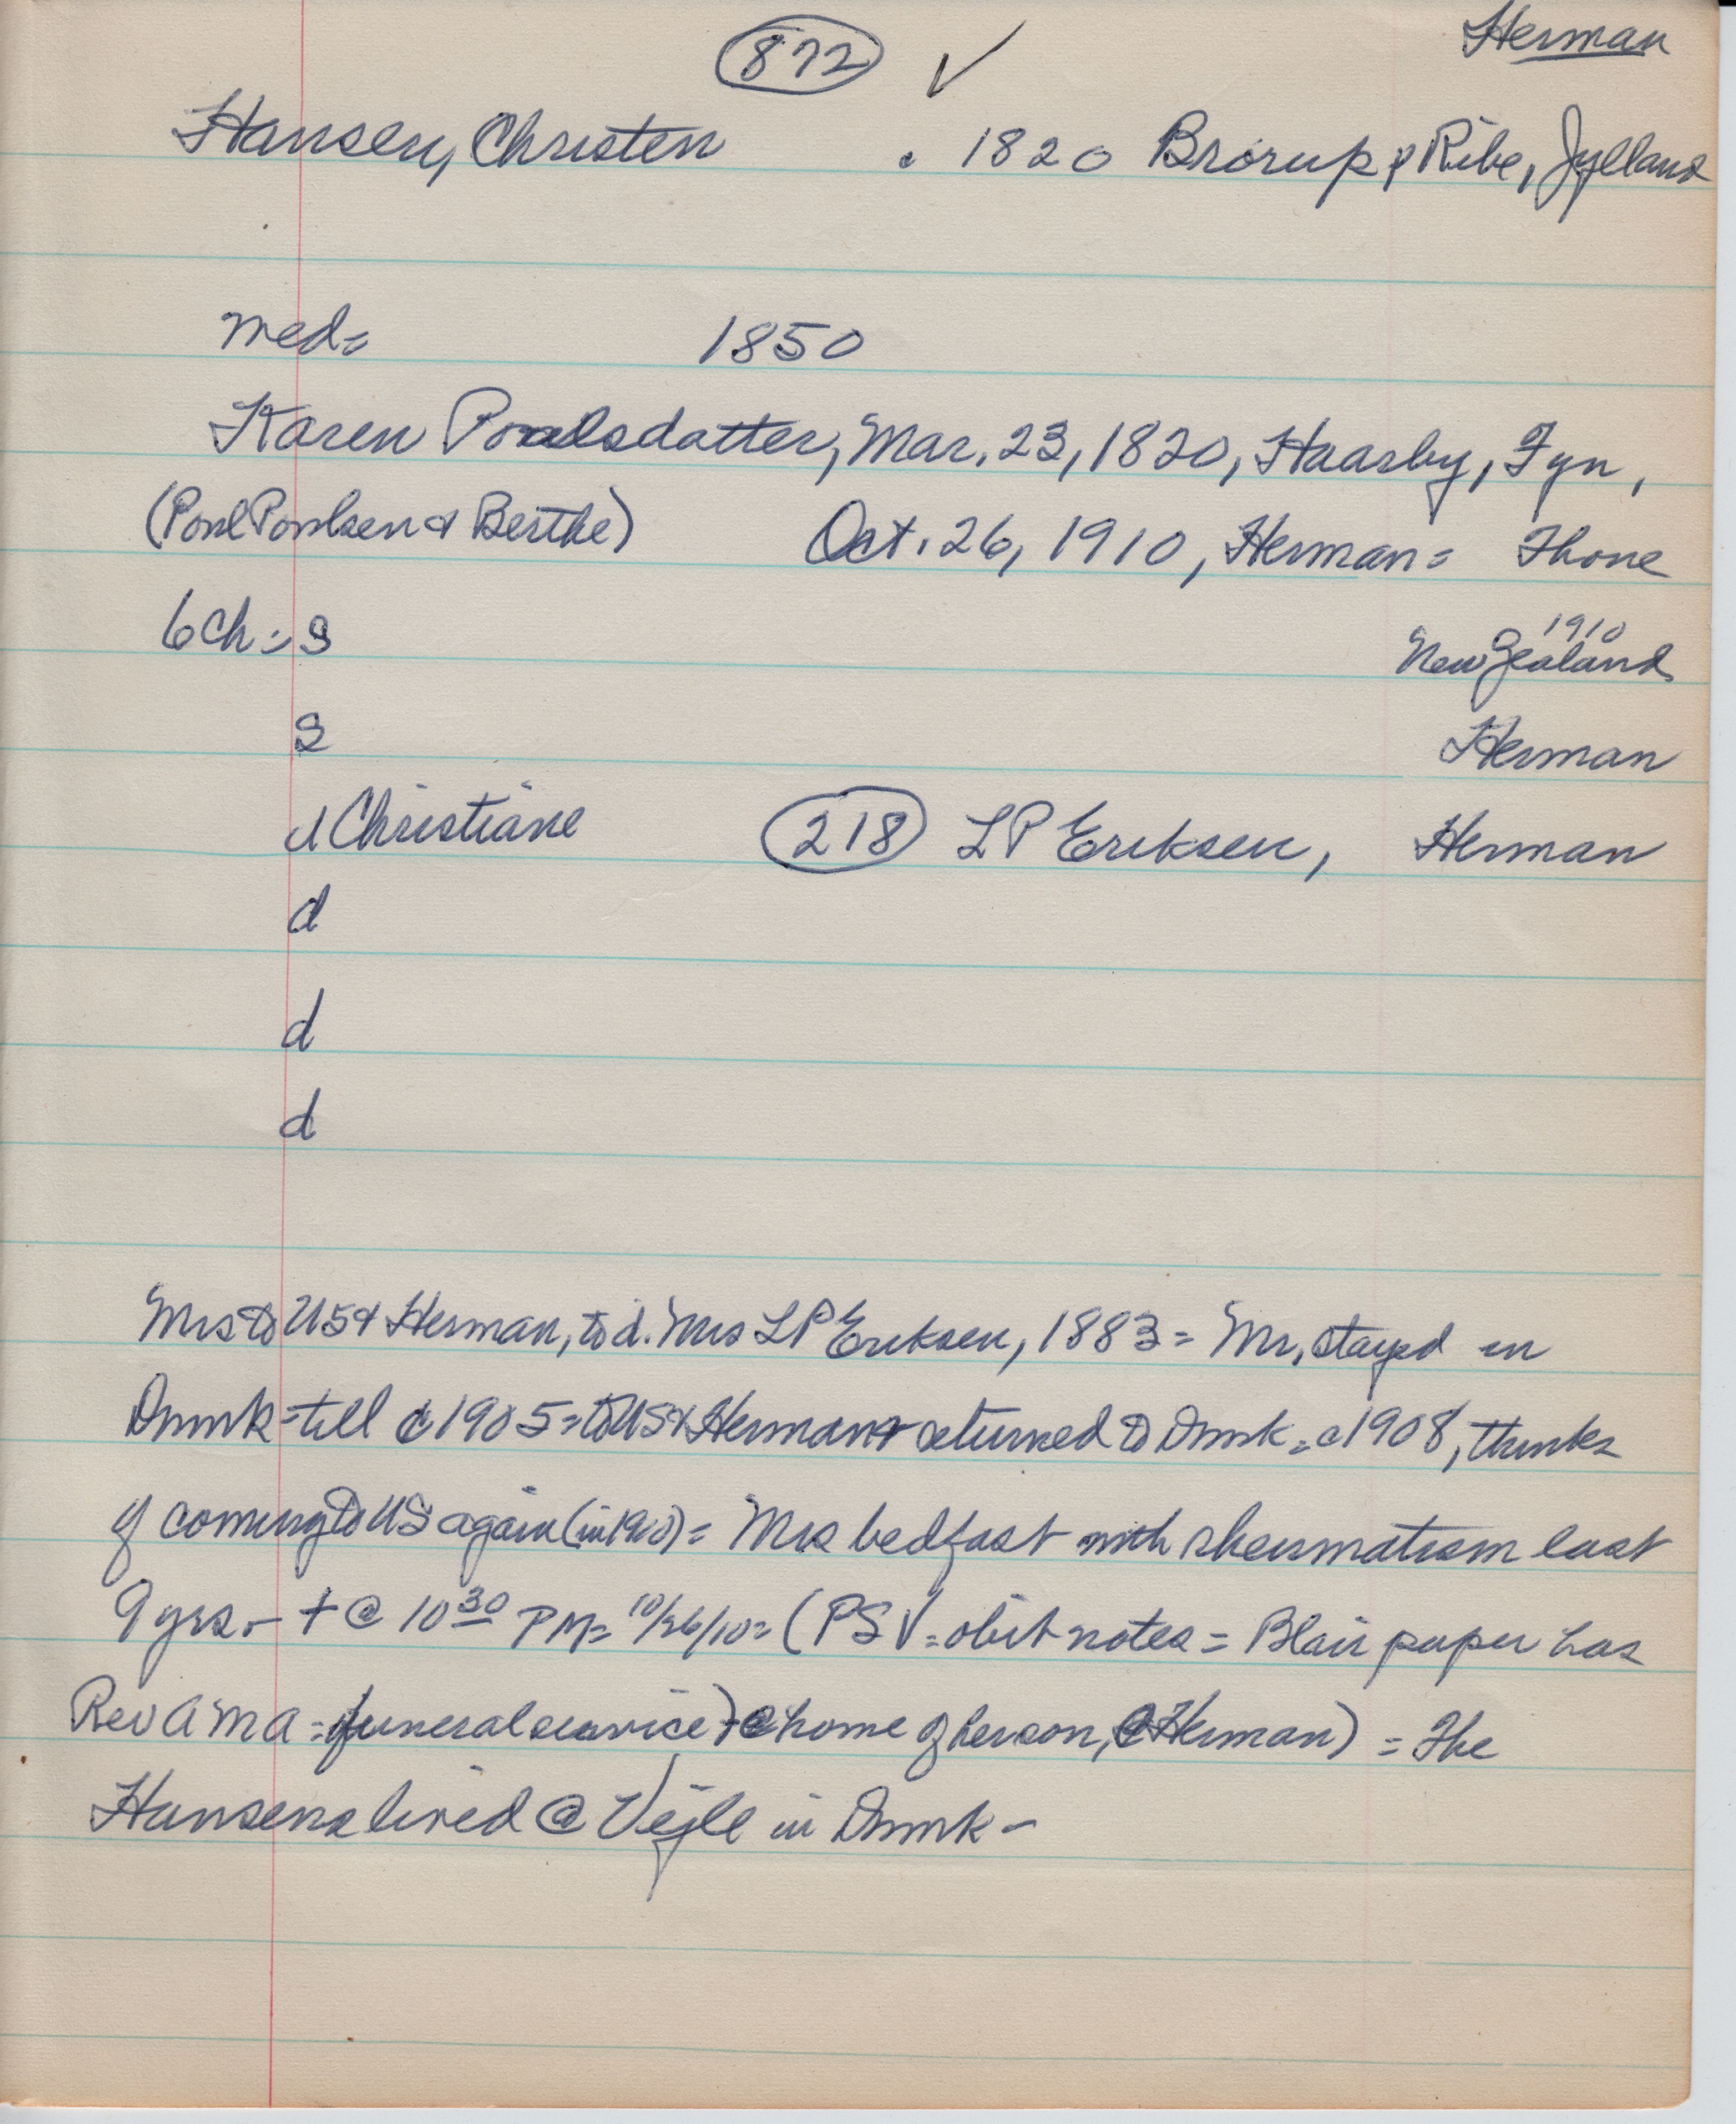 Herman
872 ✓
Hansen, Christen . 1820 Brörup, Ribe, Jylland
med= 1850
Karen Poulsdatter, Mar. 23, 1820, Haarby, Fyn,
(Poul Poulsen & Berthe) Oct. 26, 1910, Herman = Thone
6 Ch = S 1910 New Zealand
S Herman
d Christiane 218 LP Eriksen, Herman
d
d
d
Mrs to US & Herman, to d. Mrs LP Eriksen, 1883 = Mr. stayed in
Dnmk = till c 1905 = to US & Herman & returned to Dnmk = c 1908, thinks
of coming to US again (in 1910) = Mrs bedfast with rheumatism last
9 yrs. - + @ 10 30 PM = 10/26/10 = (PSV = obit notes = Blair paper has
Rev AMA = funeral service) @ home of her son, @ Herman) = The
Hansens lived @ Vejle in Dnmk -